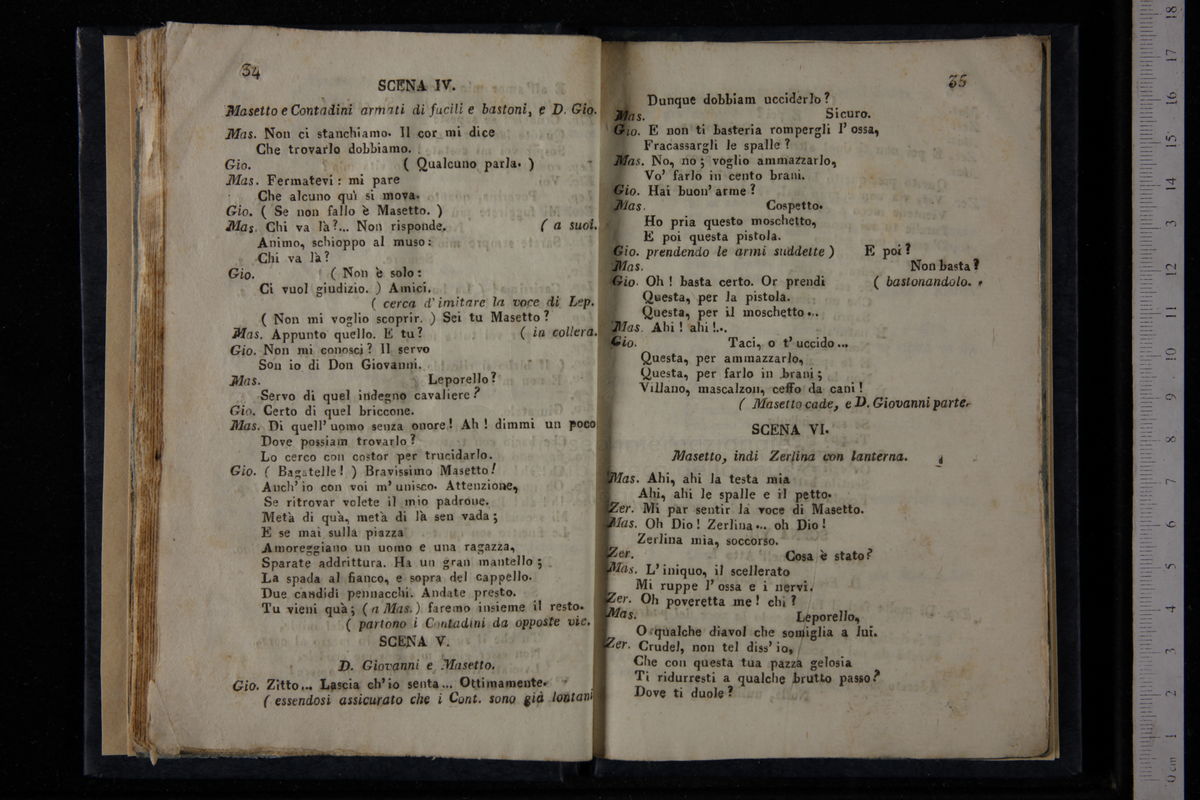 34
SCENA IV.
Masetto e Contadini armati di fucili e bastoni, e D. Gio.
Mas. Non ci stanchiamo. Il cor mi dice
Che trovarlo dobbiamo.
Gio. ( Qualcuno parla. )
Mas. Fermatevi : mi pare
Che alcuno quì si mova.
Gio. ( Se non fallo è Masetto. )
Mas. Chi va là?... Non risponde. ( a suoi.
Animo, schioppo al muso :
Chi va là ?
Gio. ( Non è solo :
Ci vuol giudizio. ) Amici.
( cerca d' imitare la voce di Lep.
( Non mi voglio scoprir. ) Sei tu Masetto ?
Mas. Appunto quello. E tu ? ( in collera.
Gio. Non mi conosci ? Il servo
Son io di Don Giovanni.
Mas. Leporello ?
Servo di quel indegno cavaliere ?
Gio. Certo di quel briccone.
Mas. Di quell' uomo senza onore ! Ah ! dimmi un poco
Dove possiam trovarlo ?
Lo cerco con costor per trucidarlo.
Gio. ( Bagatelle ! ) Bravissimo Masetto !
Anch' io con voi m' unisco. Attenzione,
Se ritrovar volete il mio padrone.
Metà di quà, metà di là sen vada ;
E se mai sulla piazza
Amoreggiano un uomo e una ragazza,
Sparate addrittura. Ha un gran mantello ;
La spada al fianco, e sopra del cappello.
Due candidi pennacchi. Andate presto.
Tu vieni quà ; ( a Mas. ) faremo insieme il resto.
( partono i Contadini da opposte vie.
SCENA V.
D. Giovanni e Masetto.
Gio. Zitto... Lascia ch' io senta... Ottimamente.
( essendosi assicurato che i Cont. sono già lontani
35
Dunque dobbiam ucciderlo ?
Mas. Sicuro.
Gio. E non ti basteria rompergli l' ossa,
Fracassargli le spalle ?
Mas. No, no ; voglio ammazzarlo,
Vo' farlo in cento brani.
Gio. Hai buon' arme ?
Mas. Cospetto.
Ho pria questo moschetto,
E poi questa pistola.
Gio. prendendo le armi suddette ) E poi ?
Mas. Non basta ?
Gio. Oh ! basta certo. Or prendi ( bastonandolo.
Questa, per la pistola.
Questa, per il moschetto...
Mas. Ahi ! ahi !...
Gio. Taci, o t' uccido...
Questa, per ammazzarlo,
Questa, per farlo in brani ;
Villano, mascalzon, ceffo da cani !
( Masetto cade, e D. Giovanni parte.
SCENA VI.
Masetto, indi Zerlina con lanterna.
Mas. Ahi, ahi la testa mia
Ahi, ahi le spalle e il petto.
Zer. Mi par sentir la voce di Masetto.
Mas. Oh Dio ! Zerlina... oh Dio !
Zerlina mia, soccorso.
Zer. Cosa è stato ?
Mas. L' iniquo, il scellerato
Mi ruppe l' ossa e i nervi.
Zer. Oh poveretta me ! chi ?
Mas. Leporello,
O qualche diavol che somiglia a lui.
Zer. Crudel, non tel diss' io,
Che con questa tua pazza gelosia
Ti ridurresti a qualche brutto passo ?
Dove ti duole ?
0 cm 1 2 3 4 5 6 7 8 9 10 11 12 13 14 15 16 17 18